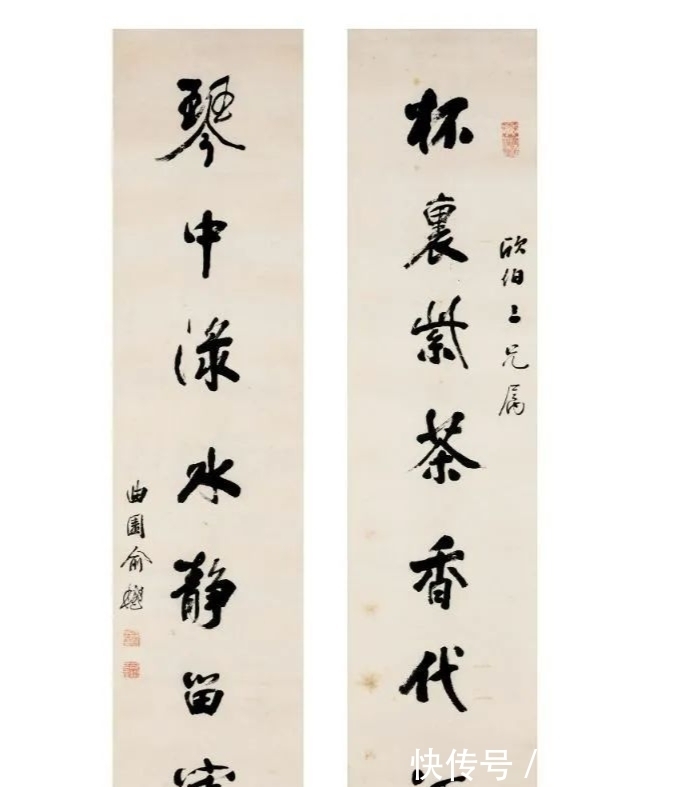 杯裏紫茶香代
欣伯兄属
琴中淥水静留
曲園俞樾
快传号 /